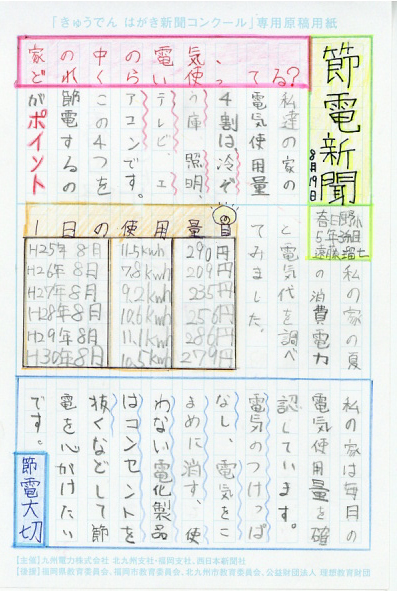 「きゅうでん はがき新聞コンクール」専用原稿用紙
節電新聞
8月19日
家の中の電気、
どれくらい使ってる?
私達の家の
電気使用量
4割は、冷ぞ
う庫、照明、
テレビ、エ
アコンです。
この4つを
節電するの
がポイント
私の家の夏
の消費電力
と電気代を調べ
てみました。
1日の使用量
H25年8月 11.5kwh 290円
H26年8月 7.8kwh 209円
H27年8月 9.2kwh 235円
H28年8月 10.6kwh 256円
H29年8月 11.1kwh 286円
H30年8月 10.5kwh 279円
私の家は毎日の
電気使用量を確
認しています。
電気のつけっぱ
なし、電気をこ
まめに消す、使
わない電化製品
はコンセントを
抜くなどして節
電を心がけたい
です。
節電大切
【主催】九州電力株式会社 北九州支社・福岡支社、西日本新聞社
【後援】福岡県教育委員会、福岡市教育委員会、北九州市教育委員会、公益財団法人 理想教育財団